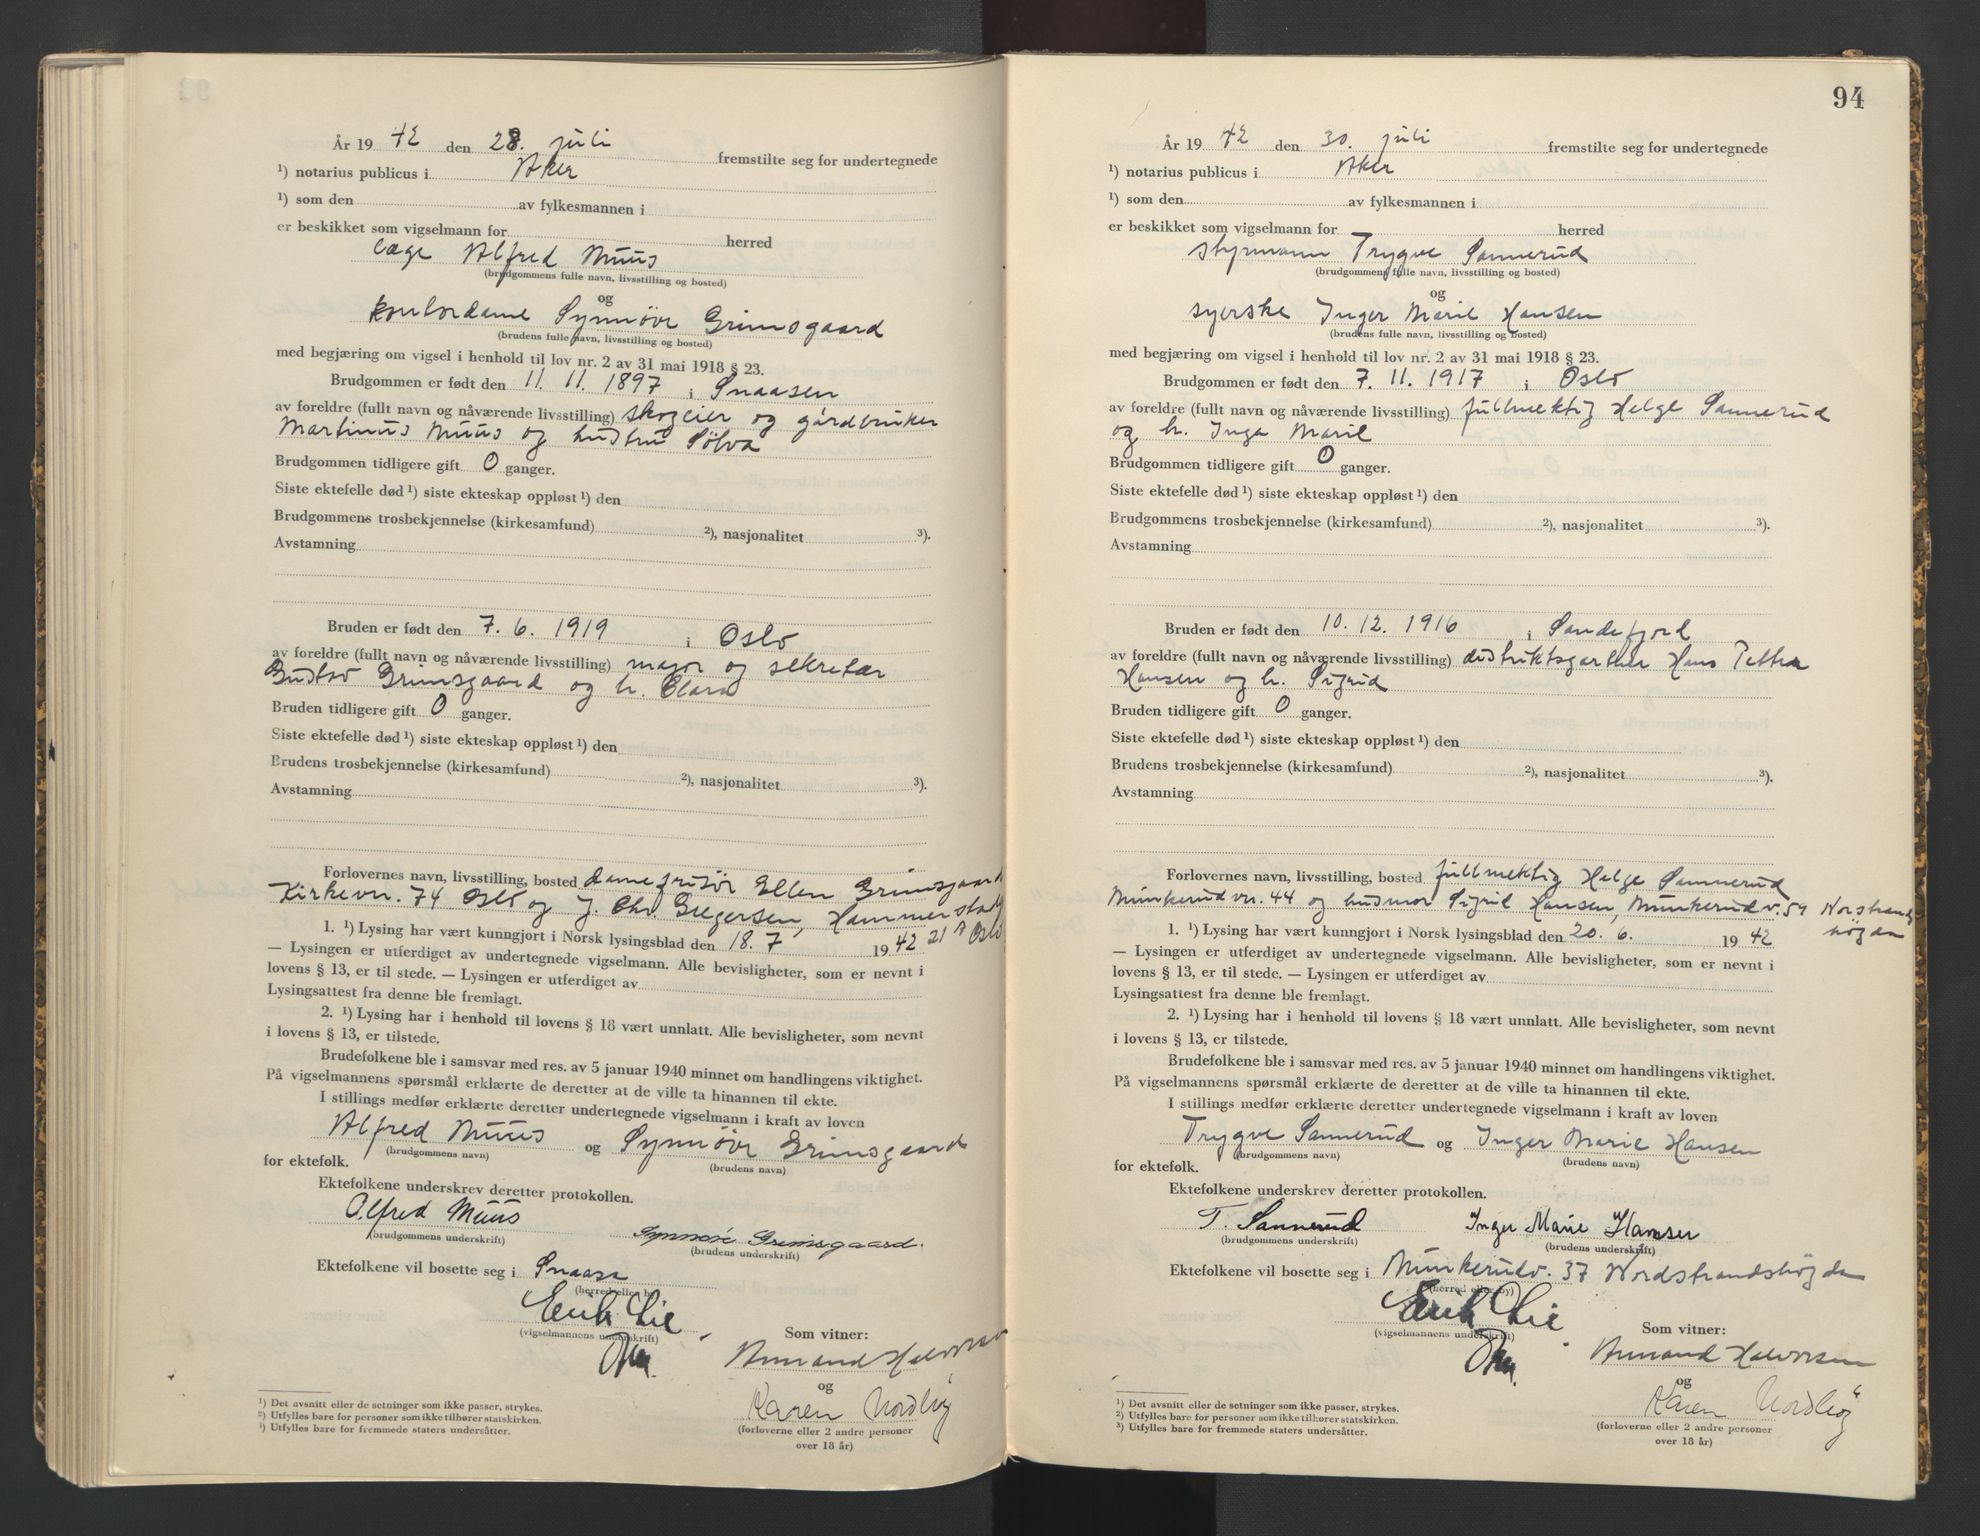 År 19 42 den 28. juli fremstilte seg for undertegnede
¹) notarius publicus i Aker
¹) som den av fylkesmannen i
er beskikket som vigselmann for herred
læge Alfred Muus
(brudgommens fulle navn, livsstilling og bosted)
og
kontordame Synnøve Grimsgaard
(brudens fulle navn, livsstilling og bosted)
med begjæring om vigsel i henhold til lov nr. 2 av 31 mai 1918 § 23.
Brudgommen er født den 11. 11. 1897 i Snaasen
av foreldre (fullt navn og nåværende livsstilling) skogeier og gårdbruker
Martinus Muus og hustru Sølva
Brudgommen tidligere gift 0 ganger.
Siste ektefelle død ¹) siste ekteskap oppløst ¹) den
Brudgommens trosbekjennelse (kirkesamfund) ²), nasjonalitet ³).
Avstamning
Bruden er født den 7. 6. 1919 i Oslo
av foreldre (fullt navn og nåværende livsstilling) major og sekretær
Gustav Grimsgaard og h. Clara
Bruden tidligere gift 0 ganger.
Siste ektefelle død ¹) siste ekteskap oppløst ¹) den
Brudens trosbekjennelse (kirkesamfund) ²), nasjonalitet ³).
Avstamning
Forlovernes navn, livsstilling, bosted damefrisør Ellen Grimsgaard
Kirkevn. 74 Oslo og J. Chr. Gregersen, Hammerstadg
1. ¹) Lysing har vært kunngjort i Norsk lysingsblad den 18. 7 19 42 21 Oslo
— Lysingen er utferdiget av undertegnede vigselmann. Alle bevisligheter, som er nevnt i
lovens § 13, er til stede. — Lysingen er utferdiget av
Lysingsattest fra denne ble fremlagt.
2. ¹) Lysing har i henhold til lovens § 18 vært unnlatt. Alle bevisligheter, som nevnt
i lovens § 13, er tilstede.
Brudefolkene ble i samsvar med res. av 5 januar 1940 minnet om handlingens viktighet.
På vigselmannens spørsmål erklærte de deretter at de ville ta hinannen til ekte.
I stillings medfør erklærte deretter undertegnede vigselmann i kraft av loven
Alfred Muus og Synnøve Grimsgaard
(brudgommens navn) (brudens navn)
for ektefolk.
Ektefolkene underskrev deretter protokollen.
Alfred Muus Synnøve Grimsgaard.
(brudgommens underskrift) (brudens underskrift)
Ektefolkene vil bosette seg i Snaasa
(herred eller by)
Erik Lie
(vigselmannens underskrift)
Som vitner:
Armand Halvorsen
og
Karen Nordby
(forloverne eller 2 andre personer
over 18 år)
¹) Det avsnitt eller de setninger som ikke passer, strykes.
²) Utfylles bare for personer som ikke tilhører statskirken.
³) Utfylles bare for fremmede staters undersåtter.
94
År 19 42 den 30. juli fremstilte seg for undertegnede
¹) notarius publicus i Aker
¹) som den av fylkesmannen i
er beskikket som vigselmann for herred
styrmann Trygve Sannerud
(brudgommens fulle navn, livsstilling og bosted)
og
syerske Inger Marie Hansen
(brudens fulle navn, livsstilling og bosted)
med begjæring om vigsel i henhold til lov nr. 2 av 31 mai 1918 § 23.
Brudgommen er født den 7. 11. 1917 i Oslo
av foreldre (fullt navn og nåværende livsstilling) fullmektig Helge Sannerud
og h. Inga Marie
Brudgommen tidligere gift 0 ganger.
Siste ektefelle død ¹) siste ekteskap oppløst ¹) den
Brudgommens trosbekjennelse (kirkesamfund) ²), nasjonalitet ³).
Avstamning
Bruden er født den 10. 12. 1916 i Sandefjord
av foreldre (fullt navn og nåværende livsstilling) distriktsgartner Hans Petter
Hansen og h. Sigrid
Bruden tidligere gift 0 ganger.
Siste ektefelle død ¹) siste ekteskap oppløst ¹) den
Brudens trosbekjennelse (kirkesamfund) ²), nasjonalitet ³).
Avstamning
Forlovernes navn, livsstilling, bosted fullmektig Helge Sannerud
Munkerudvn. 44 og husmor Sigrid Hansen, Munkerudv. Norstrands
1. ¹) Lysing har vært kunngjort i Norsk lysingsblad den 20. 6. 19 42 høgda
— Lysingen er utferdiget av undertegnede vigselmann. Alle bevisligheter, som er nevnt i
lovens § 13, er til stede. — Lysingen er utferdiget av
Lysingsattest fra denne ble fremlagt.
2. ¹) Lysing har i henhold til lovens § 18 vært unnlatt. Alle bevisligheter, som nevnt
i lovens § 13, er tilstede.
Brudefolkene ble i samsvar med res. av 5 januar 1940 minnet om handlingens viktighet.
På vigselmannens spørsmål erklærte de deretter at de ville ta hinannen til ekte.
I stillings medfør erklærte deretter undertegnede vigselmann i kraft av loven
Trygve Sannerud og Inger Marie Hansen
(brudgommens navn) (brudens navn)
for ektefolk.
Ektefolkene underskrev deretter protokollen.
T. Sannerud Inger Marie Hansen
(brudgommens underskrift) (brudens underskrift)
Ektefolkene vil bosette seg i Munkerudv. 37 Nordstrandshøgda
(herred eller by)
Erik Lie
(vigselmannens underskrift)
Som vitner:
Armand Halvorsen
og
Karen Nordby
(forloverne eller 2 andre personer
over 18 år)
¹) Det avsnitt eller de setninger som ikke passer, strykes.
²) Utfylles bare for personer som ikke tilhører statskirken.
³) Utfylles bare for fremmede staters undersåtter.